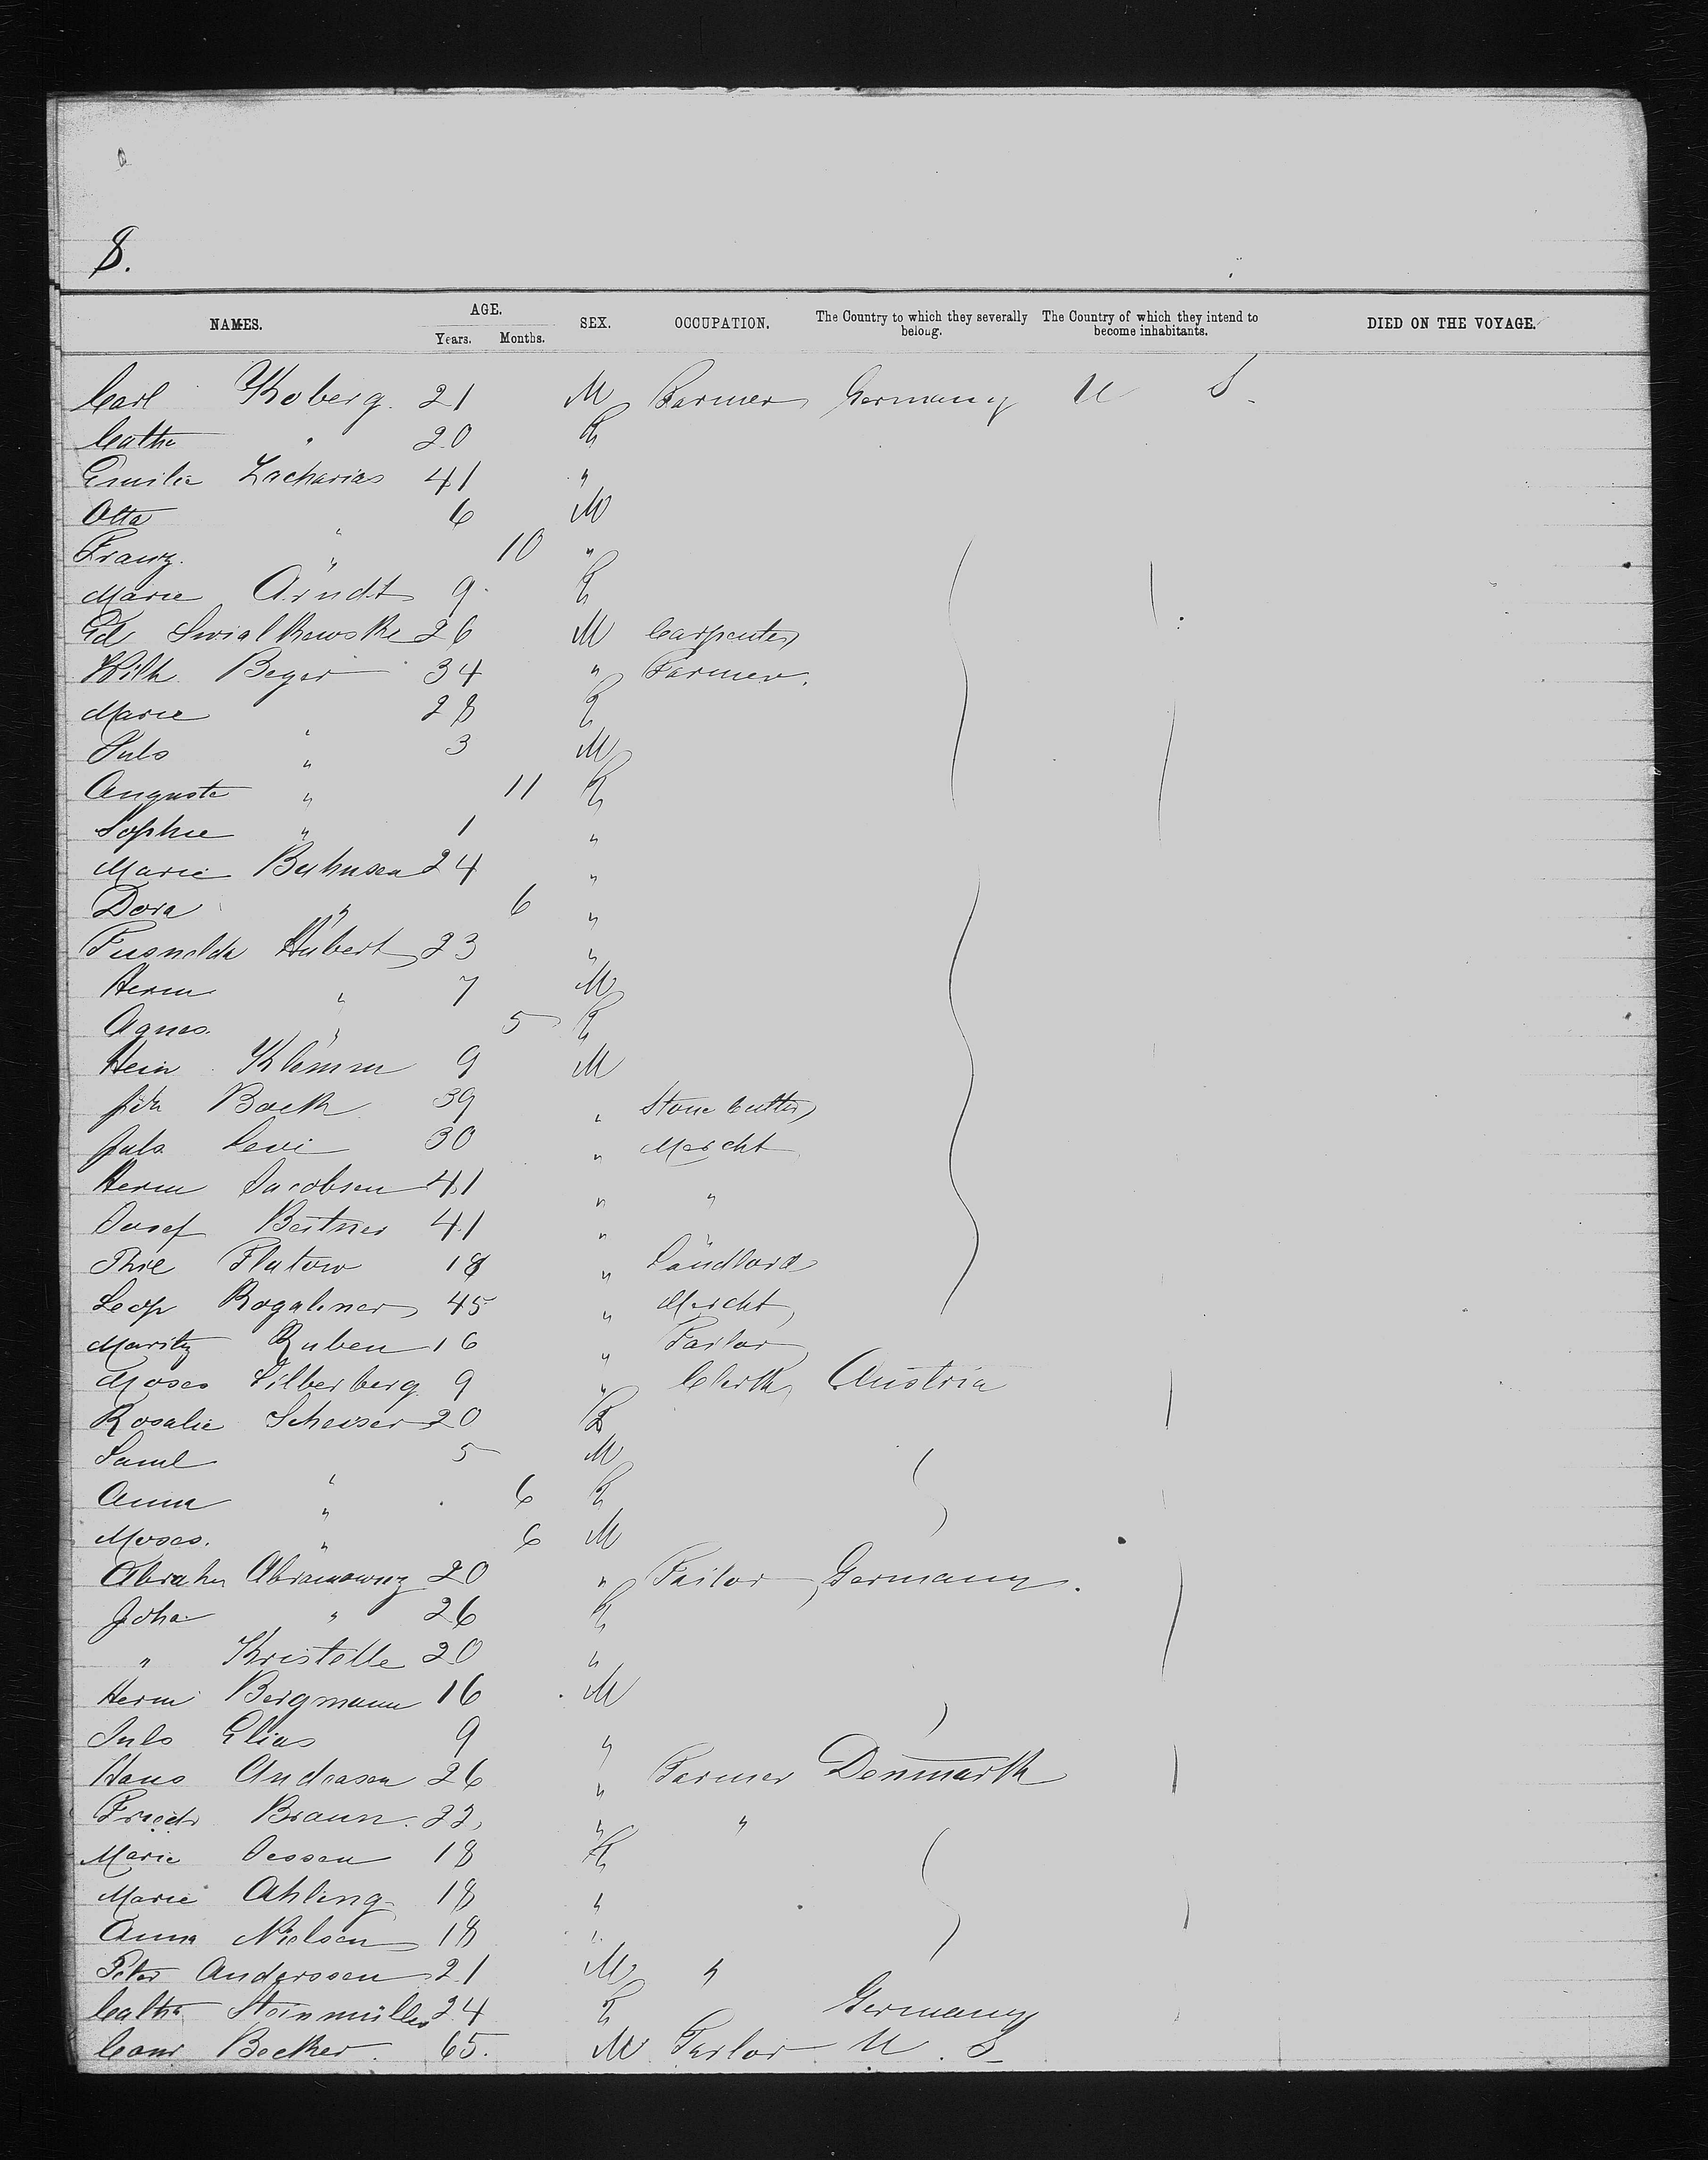 8.
NAMES. AGE. Years. Months. SEX. OCCUPATION. The Country to which they severally belong. The Country of which they intend to become inhabitants. DIED ON THE VOYAGE.
Carl Koberg. 21 M Farmer Germany U S.
Cathe " 20 F
Emilie Zacharias 41 "
Otto " 6 M
Franz. " 10 "
Marie Arndt 9 F
Ed Swialkowski 26 M Carpenter
Wilh Beyer 34 " Farmer.
Marie " 28 F
Juls " 3 M
Auguste " 11 F
Sophie " 1 "
Marie Buhnsen 24 "
Dora " 6 "
Tusnelda Hubert 23 "
Herm " 7 M
Agnes. " 5 F
Hein Klemm 9 M
Joh Bock 39 " Stone Cutter
Juls Levi 30 " Mercht
Herm Jacobsen 41 " "
Josef Bertner 41 " "
Phil Flatow 18 " Landlord
Leop Rogaliner 45 " Mercht
Moritz Ruben 16 " Tailor
Moses Silberberg 9 " Clerk Austria
Rosalie Scheiser 20 F
Saml " 5 M
Anna " 6 F
Moses. " 6 M
Abrahm Abramowicz 20 " Tailor Germany.
Joha " 26 F
" Kristelle 20 "
Herm Bergmann 16 M
Juls Elias 9 "
Hans Andreasen 26 " Farmer Denmark
Friedr Braun. 22, " "
Marie Jessen 18 F
Marie Ahling 18 "
Anna Nielsen 18 "
Peter Anderssen 21 M "
Catha Steinmüller 24 F Germany
Conr Becker. 65. M Tailor U. S